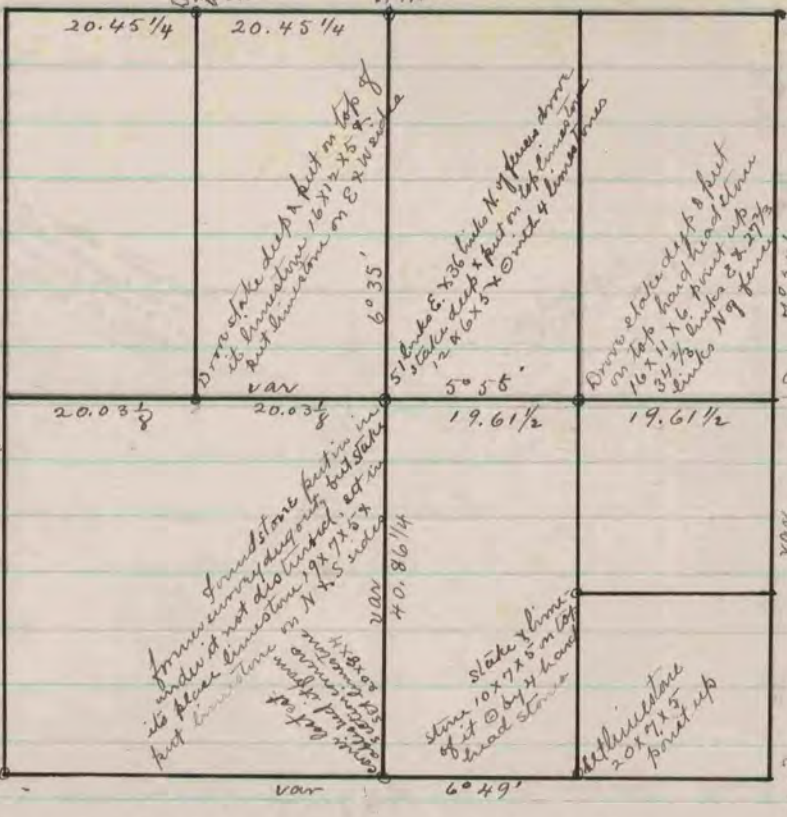 20.45 1/4
20.45 1/4
Drove stake deep & put on top of
it limestone 16x12x5 &
put limestone on E & W sides
6° 35'
51 links E. & 36 links N. of fences drove
stake deep & put on top limestone
12 x 6 x 5 & ⊙ with 4 limestones
Drove stake deep & put
on top hard head stone
16 x 11 x 6 point up
34 2/3 links E & 27 2/3
links N of fence
var
5° 55'
20.03 1/8
20.03 1/8
19.61 1/2
19.61 1/2
found stone put in in
former survey dug out, but stake
under it not disturbed, set in
its place limestone 19x7x5 &
put limestone on N & S sides
var
40.86 1/4
var
corner lost
set limestone
20x8x4
stake & lime-
stone 10x7x5 on top
of it ⊙ by 4 hard
head stones
set limestone
20x7x5
point up
var
6° 49'